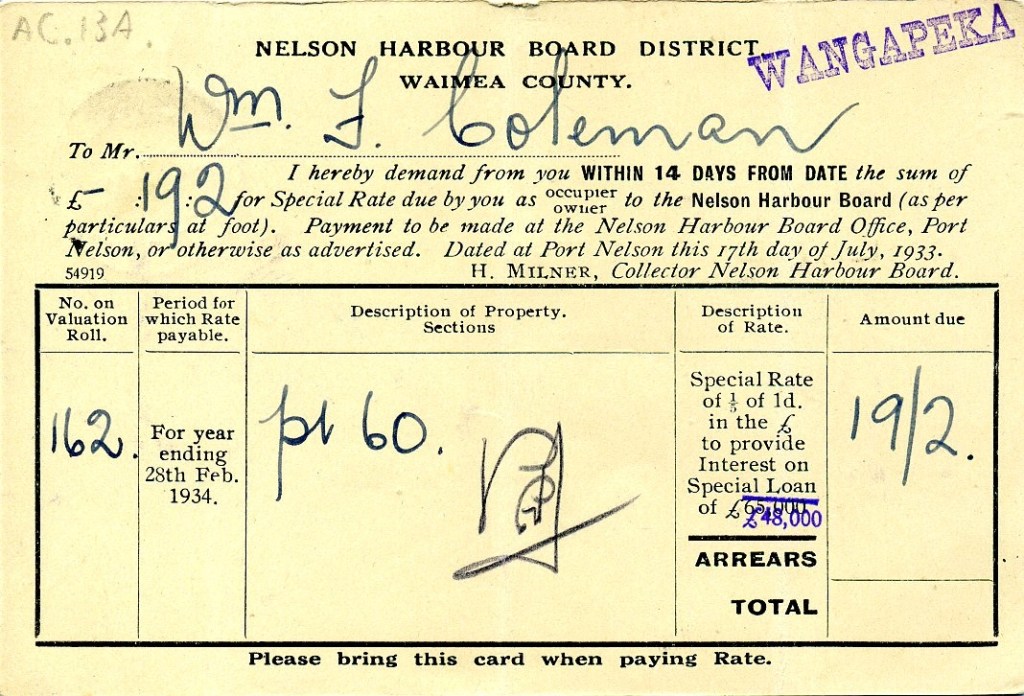 AC.13A.
NELSON HARBOUR BOARD DISTRICT.
WANGAPEKA
WAIMEA COUNTY.
To Mr. Wm. F. Coleman
I hereby demand from you WITHIN 14 DAYS FROM DATE the sum of
£ - : 19 : 2 for Special Rate due by you as occupier owner to the Nelson Harbour Board (as per
particulars at foot). Payment to be made at the Nelson Harbour Board Office, Port
Nelson, or otherwise as advertised. Dated at Port Nelson this 17th day of July, 1933.
54919 H. MILNER, Collector Nelson Harbour Board.
No. on
Valuation
Roll.
Period for
which Rate
payable.
Description of Property.
Sections
Description
of Rate.
Amount due
162.
For year
ending
28th Feb.
1934.
pt 60.
Special Rate
of 1/5 of 1d.
in the £
to provide
Interest on
Special Loan
of £65,000
£48,000
19/2.
ARREARS
TOTAL
Please bring this card when paying Rate.